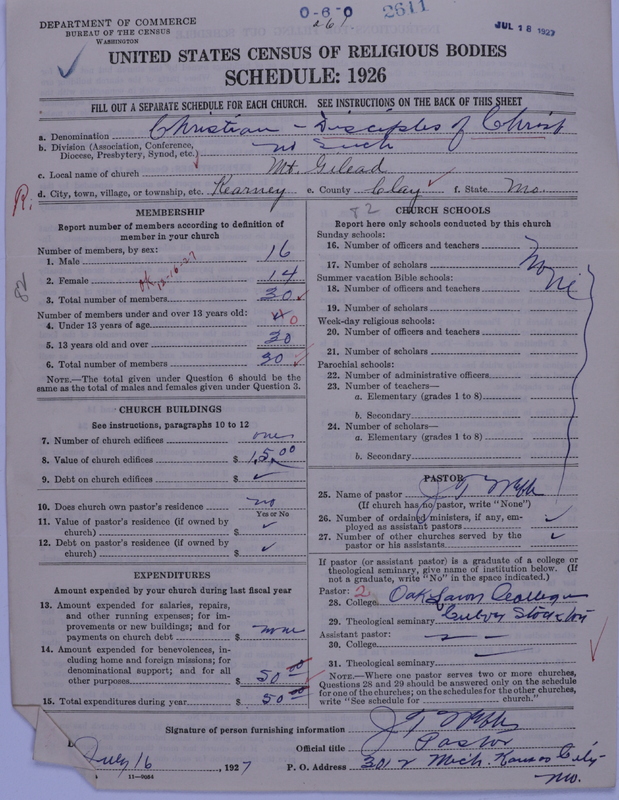 0-6-0 2611
261.
JUL 18 1927
DEPARTMENT OF COMMERCE
BUREAU OF THE CENSUS
WASHINGTON
UNITED STATES CENSUS OF RELIGIOUS BODIES
SCHEDULE: 1926
FILL OUT A SEPARATE SCHEDULE FOR EACH CHURCH. SEE INSTRUCTIONS ON THE BACK OF THIS SHEET
a. Denomination Christian - Disciples of Christ
b. Division (Association, Conference, Diocese, Presbytery, Synod, etc.) no such
c. Local name of church Mt. Gilead
d. City, town, village, or township, etc. Kearney e. County Clay f. State Mo.
R.
82
82
MEMBERSHIP
Report number of members according to definition of
member in your church
Number of members, by sex:
1. Male 16
2. Female 14
OK 12-16-27
3. Total number of members 30
Number of members under and over 13 years old:
4. Under 13 years of age 0
5. 13 years old and over 30
6. Total number of members 30
NOTE.—The total given under Question 6 should be the
same as the total of males and females given under Question 3.
CHURCH BUILDINGS
See instructions, paragraphs 10 to 12
7. Number of church edifices one
8. Value of church edifices $ 1,500
9. Debt on church edifices $
10. Does church own pastor's residence no
Yes or No
11. Value of pastor's residence (if owned by
church) $
12. Debt on pastor's residence (if owned by
church) $
EXPENDITURES
Amount expended by your church during last fiscal year
13. Amount expended for salaries, repairs,
and other running expenses; for im-
provements or new buildings; and for
payments on church debt $ none
14. Amount expended for benevolences, in-
cluding home and foreign missions; for
denominational support; and for all
other purposes $ 50 00
15. Total expenditures during year $ 50 00
CHURCH SCHOOLS
Report here only schools conducted by this church
Sunday schools:
16. Number of officers and teachers
17. Number of scholars None
Summer vacation Bible schools:
18. Number of officers and teachers
19. Number of scholars
Week-day religious schools:
20. Number of officers and teachers
21. Number of scholars
Parochial schools:
22. Number of administrative officers
23. Number of teachers—
a. Elementary (grades 1 to 8)
b. Secondary
24. Number of scholars—
a. Elementary (grades 1 to 8)
b. Secondary
PASTOR
25. Name of pastor J T Webb
(If church has no pastor, write "None")
26. Number of ordained ministers, if any, em-
ployed as assistant pastors
27. Number of other churches served by the
pastor or his assistants
If pastor (or assistant pastor) is a graduate of a college or
theological seminary, give name of institution below. (If
not a graduate, write "No" in the space indicated.)
Pastor: 2
28. College College
29. Theological seminary Culver Stockton
Assistant pastor:
30. College
31. Theological seminary
NOTE.—Where one pastor serves two or more churches,
Questions 28 and 29 should be answered only on the schedule
for one of the churches; on the schedules for the other churches,
write "See schedule for church."
Signature of person furnishing information J T Webb
Official title Pastor
July 16, 1927 P. O. Address 3012 Mich. Kansas City
Mo.
11-9064